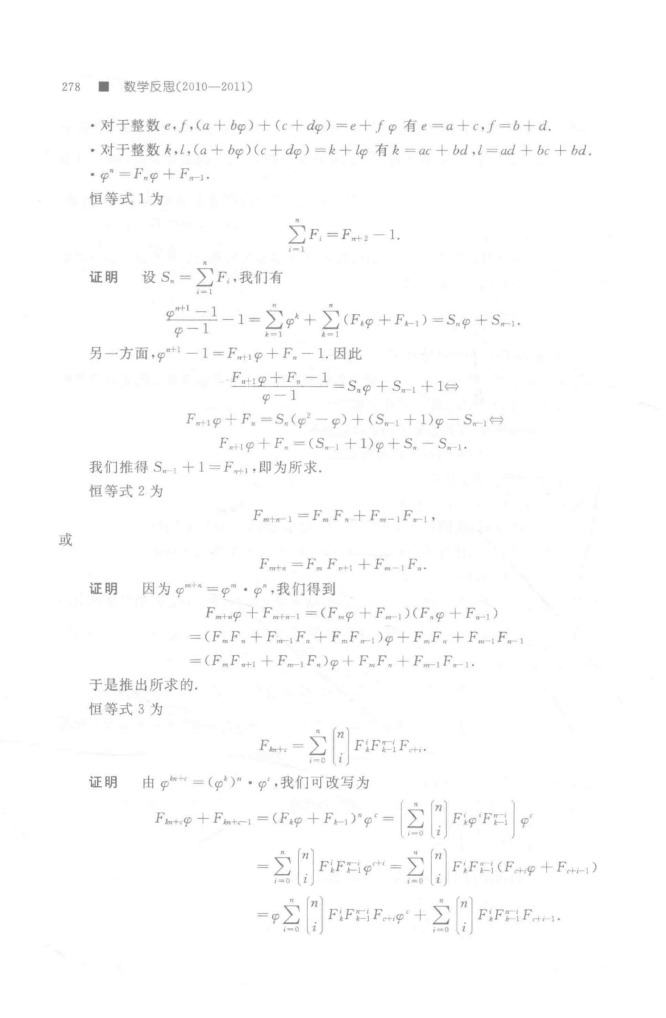 278 ■ 数学反思(2010—2011)
·对于整数 e,f,(a+bφ)+(c+dφ)=e+fφ 有 e=a+c,f=b+d.
·对于整数 k,l,(a+bφ)(c+dφ)=k+lφ 有 k=ac+bd,l=ad+bc+bd.
·φ^n=F_nφ+F_{n-1}.
恒等式 1 为
\sum_{i=1}^{n}F_i=F_{n+2}-1.
证明 设 S_n=\sum_{i=1}^{n}F_i,我们有
\frac{φ^{n+1}-1}{φ-1}-1=\sum_{k=1}^{n}φ^k+\sum_{k=1}^{n}(F_kφ+F_{k-1})=S_nφ+S_{n-1}.
另一方面,φ^{n+1}-1=F_{n+1}φ+F_n-1.因此
\frac{F_{n+1}φ+F_n-1}{φ-1}=S_nφ+S_{n-1}+1⇔
F_{n+1}φ+F_n=S_n(φ^2-φ)+(S_{n-1}+1)φ-S_{n-1}⇔
F_{n+1}φ+F_n=(S_{n-1}+1)φ+S_n-S_{n-1}.
我们推得 S_{n-1}+1=F_{n+1},即为所求.
恒等式 2 为
F_{m+n-1}=F_mF_n+F_{m-1}F_{n-1},
或
F_{m+n}=F_mF_{n+1}+F_{m-1}F_n.
证明 因为 φ^{m+n}=φ^m·φ^n,我们得到
F_{m+n}φ+F_{m+n-1}=(F_mφ+F_{m-1})(F_nφ+F_{n-1})
=(F_mF_n+F_{m-1}F_n+F_mF_{n-1})φ+F_mF_n+F_{m-1}F_{n-1}
=(F_mF_{n+1}+F_{m-1}F_n)φ+F_mF_n+F_{m-1}F_{n-1}.
于是推出所求的.
恒等式 3 为
F_{kn+c}=\sum_{i=0}^{n}\binom{n}{i}F_k^iF_{k-1}^{n-i}F_{c+i}.
证明 由 φ^{kn+c}=(φ^k)^n·φ^c,我们可改写为
F_{kn+c}φ+F_{kn+c-1}=(F_kφ+F_{k-1})^nφ^c=\left(\sum_{i=0}^{n}\binom{n}{i}F_k^iφ^iF_{k-1}^{n-i}\right)φ^c
=\sum_{i=0}^{n}\binom{n}{i}F_k^iF_{k-1}^{n-i}φ^{c+i}=\sum_{i=0}^{n}\binom{n}{i}F_k^iF_{k-1}^{n-i}(F_{c+i}φ+F_{c+i-1})
=φ\sum_{i=0}^{n}\binom{n}{i}F_k^iF_{k-1}^{n-i}F_{c+i}φ^c+\sum_{i=0}^{n}\binom{n}{i}F_k^iF_{k-1}^{n-i}F_{c+i-1}.